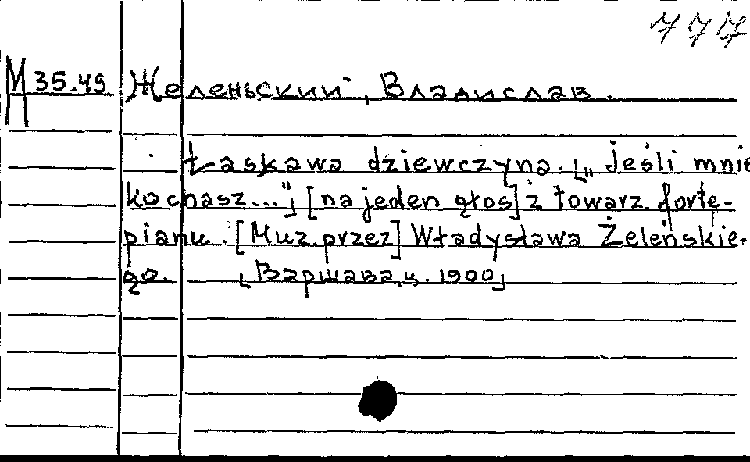 777
М 35.49 Желеньский, Владислав.
Łaskawa dziewczyna. [„Jeśli mnie
kochasz..."] [na jeden głos] z towarz. forte-
pianu. [Muz. przez] Władysława Żeleńskie-
go. [Варшава, ц. 1900]